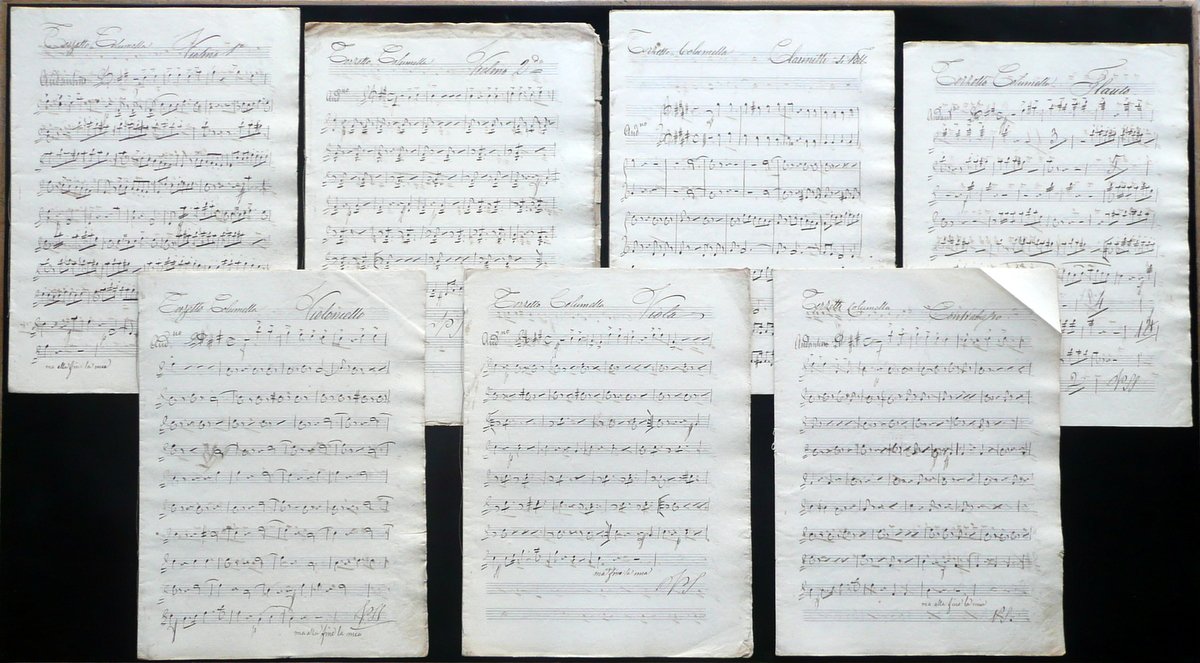 Terzetto Columella Violino 1º
Andantino
ma alla fine la mia
Terzetto Columella Violino 2do
And.no
Terzetto Columella Clarinetti
And.no
Terzetto Columella Flauto
Andantino
3
2
Terzetto Columella Violoncello
And.no
ma alla fine la mia
Terzetto Columella Viola
And.no
ma fine la mia
Terzetto Columella Contrabasso
Andantino
ma alla fine la mia